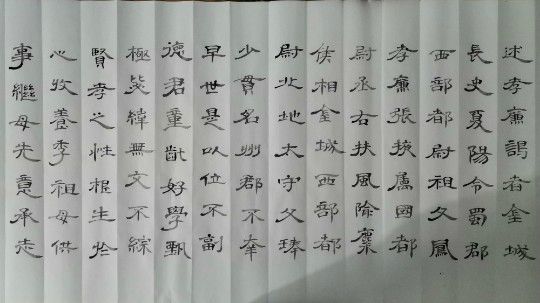 述孝廉謁者金城
長史夏陽令蜀郡
西部都尉祖父鳳
孝廉張掖屬國都
尉丞右扶風隃麋
侯相金城西部都
尉北地太守父琫
少貫名州郡不幸
早世是以位不副
德君童齔好學甄
極毖緯無文不綜
賢孝之性根生於
心收養季祖母供
事繼母先意承志